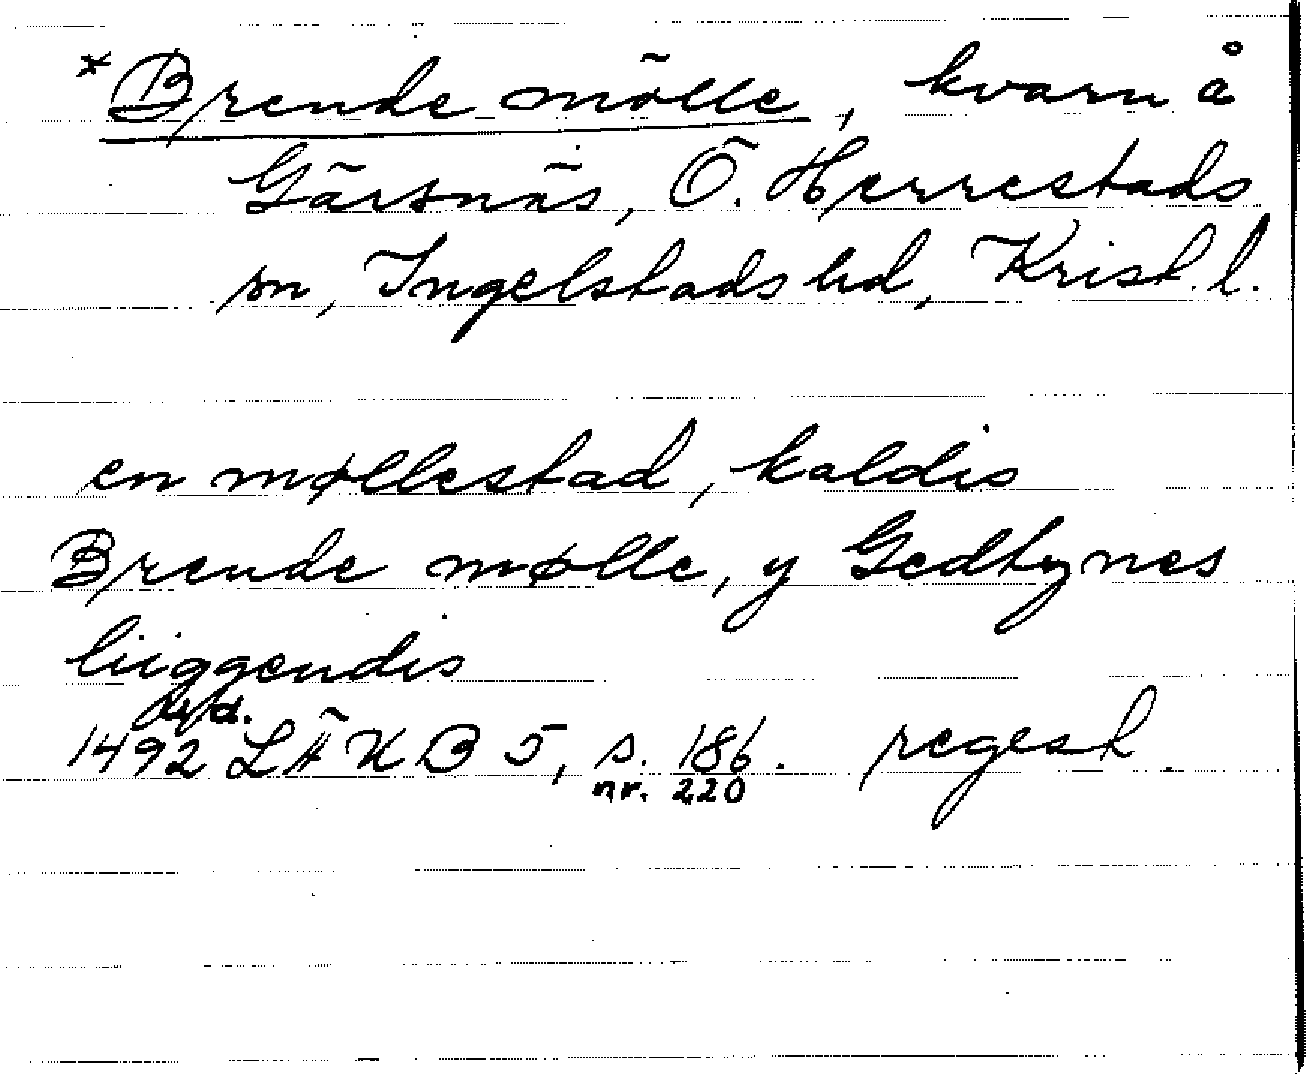 *Brende mölle, kvarn å
Gärsnäs, Ö. Herrestads
sn, Ingelstads hd, Krist. l.
en møllestad, kaldis
Brende mølle, y Gedbynes
liiggendis
1492 LÄUB 5, s. 186. regest.
nr. 220